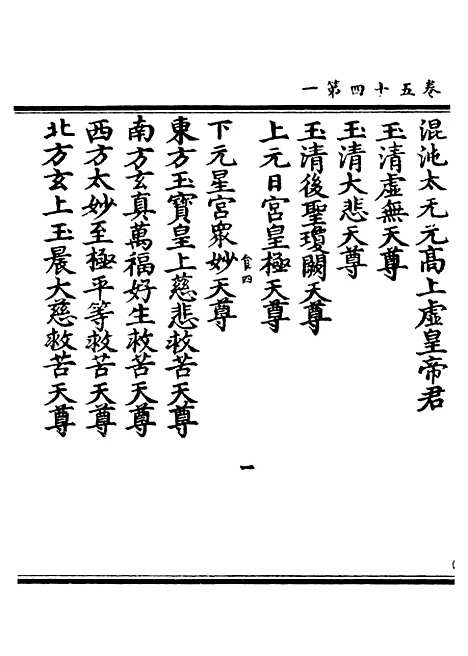 卷五十四第一
混沌太无元高上虛皇帝君
玉清虛無天尊
玉清大悲天尊
玉清後聖瓊闕天尊
上元日宮皇極天尊
食四
下元星宮衆妙天尊
東方玉寶皇上慈悲救苦天尊
南方玄真萬福好生救苦天尊
西方太妙至極平等救苦天尊
北方玄上玉晨大慈救苦天尊
一